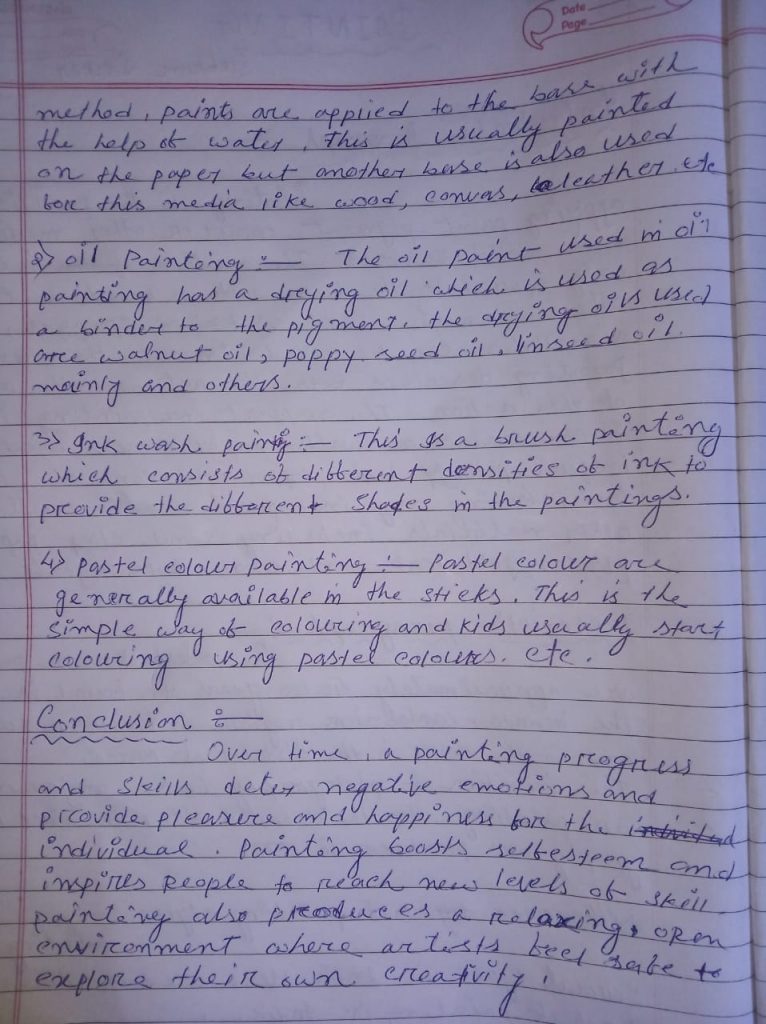 Date
Page
method, paints are applied to the base with
the help of water. This is usually painted
on the paper but another base is also used
for this media like wood, convas, leather, etc
2) oil Painting :- The oil paint used in oil
painting has a drying oil which is used as
a binder to the pigment. the drying oils used
are walnut oil, poppy seed oil, linseed oil.
mainly and others.
3) Ink wash painting :- This is a brush painting
which consists of different densities of ink to
provide the different Shades in the paintings.
4) Pastel colour painting :- Pastel colour are
generally available in the sticks. This is the
simple way of colouring and kids usually start
colouring using pastel colours. etc.
Conclusion :-
Over time, a painting progress
and skills deter negative emotions and
provide pleasure and happiness for the
individual. Painting boosts selfesteem and
inspires people to reach new levels of skill.
painting also produces a relaxing, open
environment where artists feel safe to
explore their own creativity.